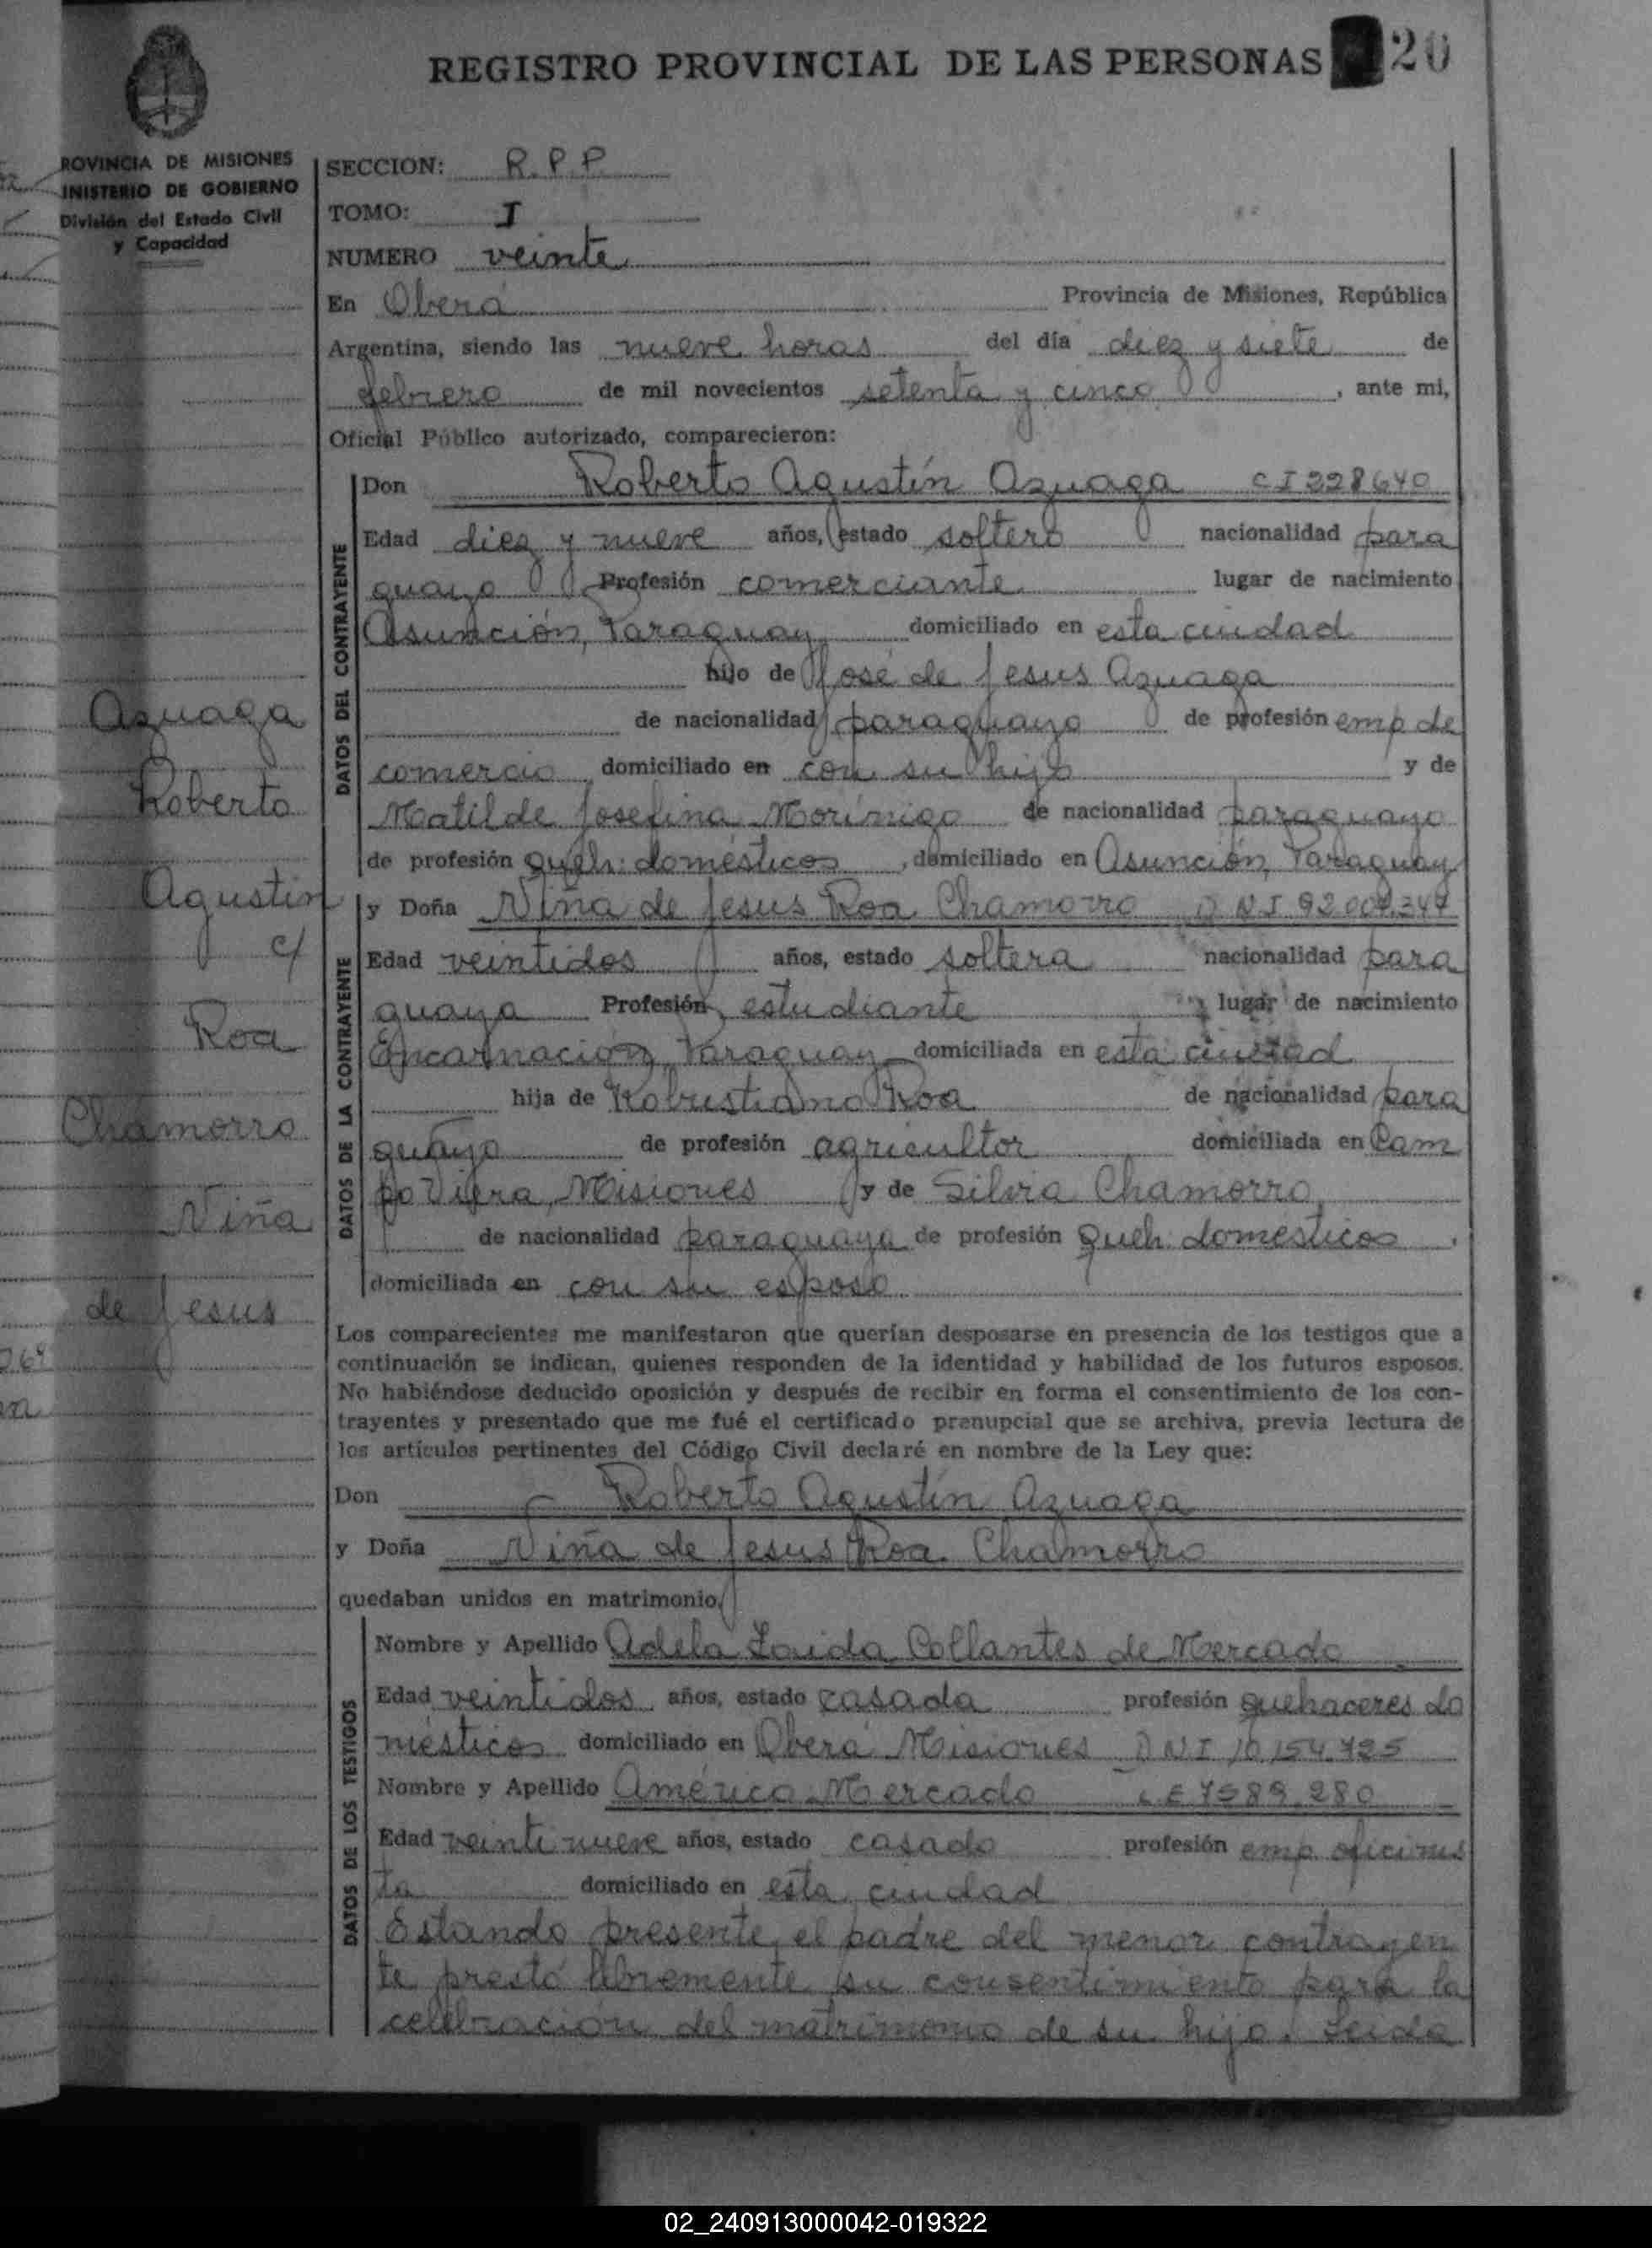 REGISTRO PROVINCIAL DE LAS PERSONAS 20
ROVINCIA DE MISIONES
INISTERIO DE GOBIERNO
División del Estado Civil
y Capacidad
SECCION: R.P.P.
TOMO: I
NUMERO veinte
En Oberá Provincia de Misiones, República
Argentina, siendo las nueve horas del día diez y siete de
febrero de mil novecientos setenta y cinco, ante mi,
Oficial Público autorizado, comparecieron:
DATOS DEL CONTRAYENTE
Don Roberto Agustín Azuaga CI 228640
Edad diez y nueve años, estado soltero nacionalidad para
guayo Profesión comerciante lugar de nacimiento
Asunción, Paraguay domiciliado en esta ciudad
hijo de José de Jesus Azuaga
de nacionalidad paraguayo de profesión emp de
comercio domiciliado en con su hijo y de
Matilde Josefina Morínigo de nacionalidad paraguayo
de profesión queh: domésticos, domiciliado en Asunción, Paraguay
DATOS DE LA CONTRAYENTE
y Doña Niña de Jesus Roa Chamorro DNI 92.007.347
Edad veintidos años, estado soltera nacionalidad para
guaya Profesión estudiante lugar de nacimiento
Encarnación, Paraguay domiciliada en esta ciudad
hija de Robustiano Roa de nacionalidad para
guayo de profesión agricultor domiciliada en Cam
po Viera, Misiones y de Silvia Chamorro
de nacionalidad paraguaya de profesión queh: domésticos,
domiciliada en con su esposo
Azuaga
Roberto
Agustin
c/
Roa
Chamorro
Niña
de Jesus
Los comparecientes me manifestaron que querían desposarse en presencia de los testigos que a
continuación se indican, quienes responden de la identidad y habilidad de los futuros esposos.
No habiéndose deducido oposición y después de recibir en forma el consentimiento de los con-
trayentes y presentado que me fué el certificado prenupcial que se archiva, previa lectura de
los artículos pertinentes del Código Civil declaré en nombre de la Ley que:
Don Roberto Agustín Azuaga
y Doña Niña de Jesus Roa Chamorro
quedaban unidos en matrimonio.
DATOS DE LOS TESTIGOS
Nombre y Apellido Adela Zaida Collantes de Mercado
Edad veintidos años, estado casada profesión quehaceres do
mésticos domiciliado en Oberá Misiones DNI 10.154.725
Nombre y Apellido Américo Mercado LE 7589.280
Edad veintinueve años, estado casado profesión emp. oficinis
ta domiciliado en esta ciudad
Estando presente el padre del menor contrayen
te prestó libremente su consentimiento para la
celebración del matrimonio de su hijo. Leida
02_240913000042-019322